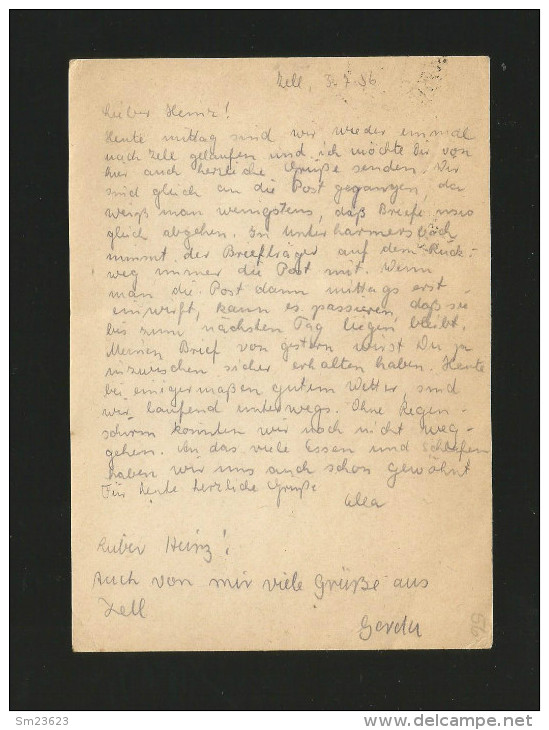 Zell, 3.7.56
Lieber Heinz!
Heute mittag sind wir wieder einmal
nach Zell gelaufen und ich möchte Dir von
hier auch herzliche Grüße senden. Wir
sind gleich an die Post gegangen, da
weiß man wenigstens, daß Briefe usw
gleich abgehen. In Unterharmersbach
nimmt der Briefträger auf dem Rück-
weg immer die Post mit. Wenn
man die Post dann mittags erst
einwirft, kann es passieren, daß sie
bis zum nächsten Tag liegen bleibt.
Meinen Brief von gestern wirst Du ja
inzwischen sicher erhalten haben. Heute
bei einigermaßen gutem Wetter, sind
wir laufend unterwegs. Ohne Regen-
schirm konnten wir noch nicht weg-
gehen. An das viele Essen und Schlafen
haben wir uns auch schon gewöhnt
Für heute herzliche Grüße
Lieber Heinz!
Auch von mir viele Grüße aus
Zell
Gerda
56
Sm23623
www.delcampe.net